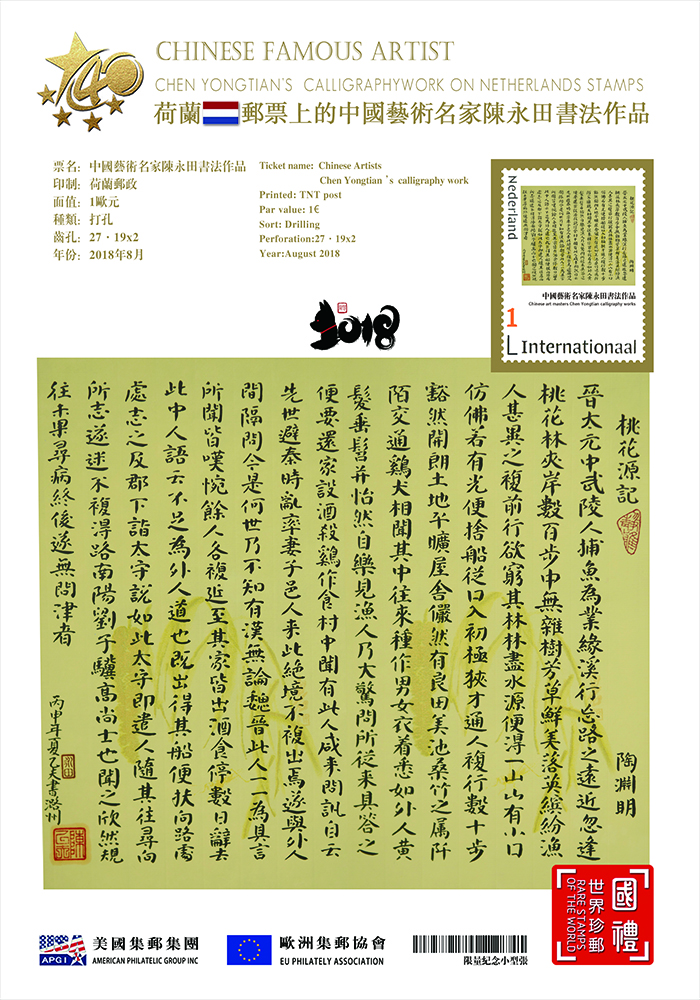 140
CHINESE FAMOUS ARTIST
CHEN YONGTIAN'S CALLIGRAPHYWORK ON NETHERLANDS STAMPS
荷蘭郵票上的中國藝術名家陳永田書法作品
票名：中國藝術名家陳永田書法作品
印制：荷蘭郵政
面值：1歐元
種類：打孔
齒孔：27·19x2
年份：2018年8月
Ticket name: Chinese Artists
Chen Yongtian 's calligraphy work
Printed: TNT post
Par value: 1€
Sort: Drilling
Perforation:27·19x2
Year:August 2018
Nederland
中國藝術名家陳永田書法作品
Chinese art masters Chen Yongtian calligraphy works
1
L Internationaal
2018
桃花源記 陶淵明
晉太元中武陵人捕魚為業緣溪行忘路之遠近忽逢
桃花林夾岸數百步中無雜樹芳草鮮美落英繽紛漁
人甚異之複前行欲窮其林林盡水源便得一山山有小口
仿佛若有光便捨船從口入初極狹才通人複行數十步
豁然開朗土地平曠屋舍儼然有良田美池桑竹之屬阡
陌交通鷄犬相聞其中往來種作男女衣着悉如外人黄
髮垂髫并怡然自樂見漁人乃大驚問所從來具答之
便要還家設酒殺鷄作食村中聞有此人咸来問訊自云
先世避秦時亂率妻子邑人来此絶境不複出焉遂與外人
間隔問今是何世乃不知有漢無論魏晉此人一一為具言
所聞皆嘆惋餘人各複延至其家皆出酒食停數日辭去
此中人語云不足為外人道也既出得其船便扶向路處
處志之及郡下詣太守說如此太守即遣人隨其往尋向
所志遂迷不複得路南陽劉子驥高尚士也聞之欣然規
往未果尋病終後遂無問津者
丙申年夏乙夫書潞州
國禮
世界珍郵
RARE STAMPS
OF THE WORLD
APGI
美國集郵集團
AMERICAN PHILATELIC GROUP INC
歐洲集郵協會
EU PHILATELY ASSOCIATION
限量紀念小型張